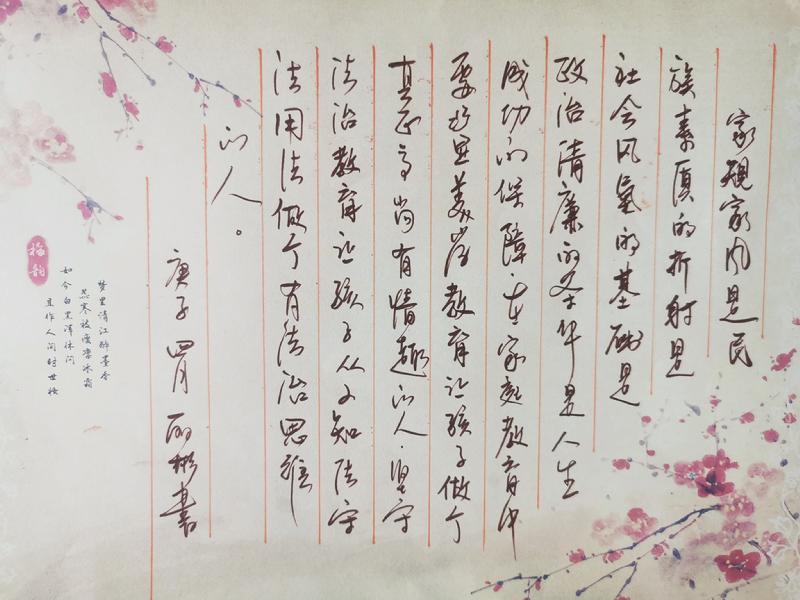 家规家风是民
族素质的折射是
社会风气的基础是
政治清廉的华是人生
成功的保障.在家庭教育中
要显美育教育让孩子做个
真正高尚有情趣的人.坚守
法治教育让孩子从小知法守
法用法做个有法治思维
的人。
庚子四月 丽彬書
梦里清江醉墨香
蕊寒枝瘦凛冰霜
如今白黑浑休问
且作人间时世妆
梅韵